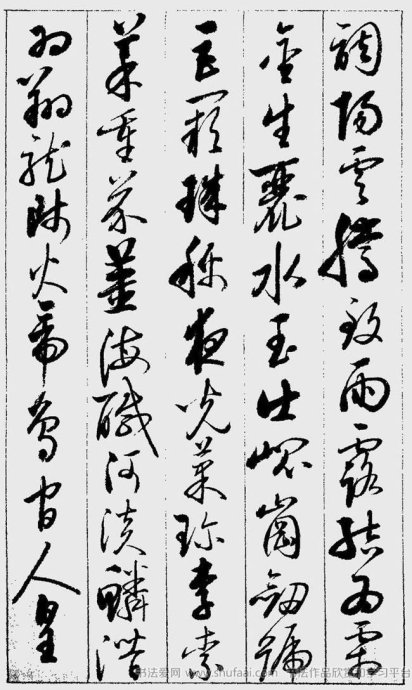 調陽雲騰致雨露結為霜
金生麗水玉出崐崗劍號
巨闕珠稱夜光菓珍李柰
菜重芥薑海醎河淡鱗潛
羽翔龍師火帝鳥官人皇
书法爱网 www.shufaai.com 书法作品欣赏和学习平台